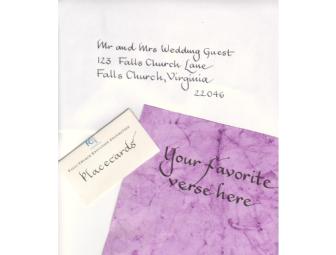 Mr and Mrs Wedding Guest
123 Falls Church Lane
Falls Church, Virginia
22046
Placecards
Your favorite
verse here